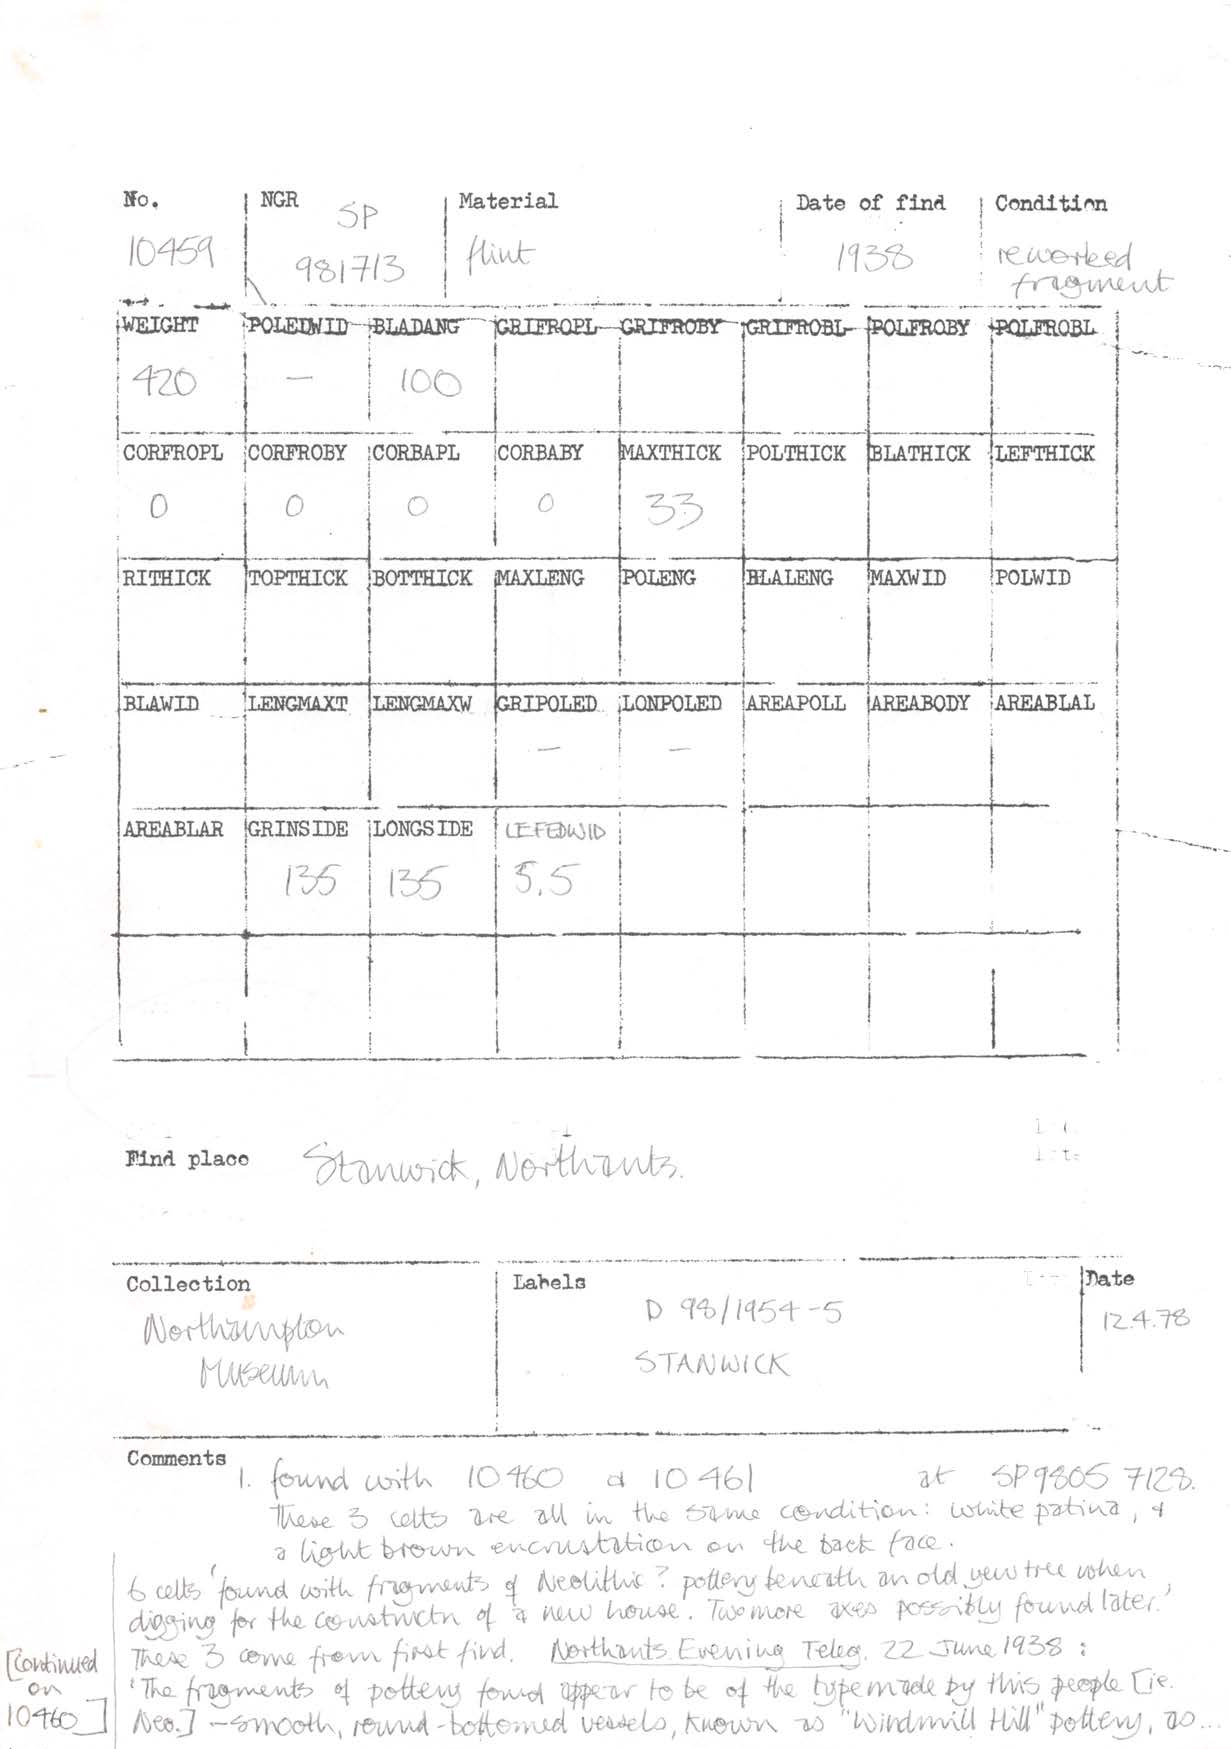 No. NGR Material Date of find Condition
SP
10459 981713 flint 1938 reworked
fragment
WEIGHT POLEDWID BLADANG GRIFROPL GRIFROBY GRIFROBL POLFROBY POLFROBL
420 — 100
CORFROPL CORFROBY CORBAPL CORBABY MAXTHICK POLTHICK BLATHICK LEFTHICK
0 0 0 0 33
RITHICK TOPTHICK BOTTHICK MAXLENG POLENG BLALENG MAXWID POLWID
BLAWID LENGMAXT LENGMAXW GRIPOLED LONPOLED AREAPOLL AREABODY AREABLAL
— —
AREABLAR GRINSIDE LONGSIDE LEFEDWID
135 135 5.5
Find place Stanwick, Northants.
Collection Labels Date
Northampton D 98/1954-5 12.4.78
Museum STANWICK
Comments 1. found with 10460 & 10461 at SP9805 7128.
These 3 celts are all in the same condition: white patina, &
a light brown encrustation on the back face.
6 celts 'found with fragments of Neolithic? pottery beneath an old yew tree when
digging for the constructn of a new house. Two more axes possibly found later.'
These 3 come from first find. Northants Evening Teleg. 22 June 1938 :
'The fragments of pottery found appear to be of the type made by this people [ie.
Neo.] - smooth, round-bottomed vessels, known as "Windmill Hill" pottery, as ...
[continued
on
10460]